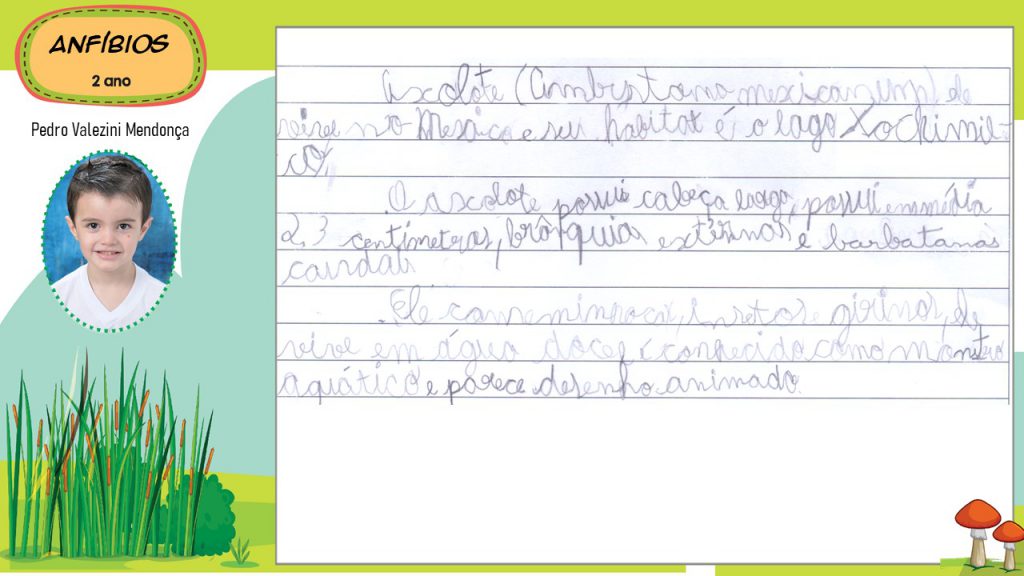 ANFÍBIOS
2 ano
Pedro Valezini Mendonça
Axolote (Ambystoma mexicanum) ele
vive no Mexico e seu habitat é o lago Xochimil-
co.
O axolote possui cabeça larga, possui em média
2,3 centímetros, brânquias externas e barbatanas
caudais
Ele come minhocas, insetos e girinos, ele
vive em água doce é conhecido como monstro
aquático e parece desenho animado.